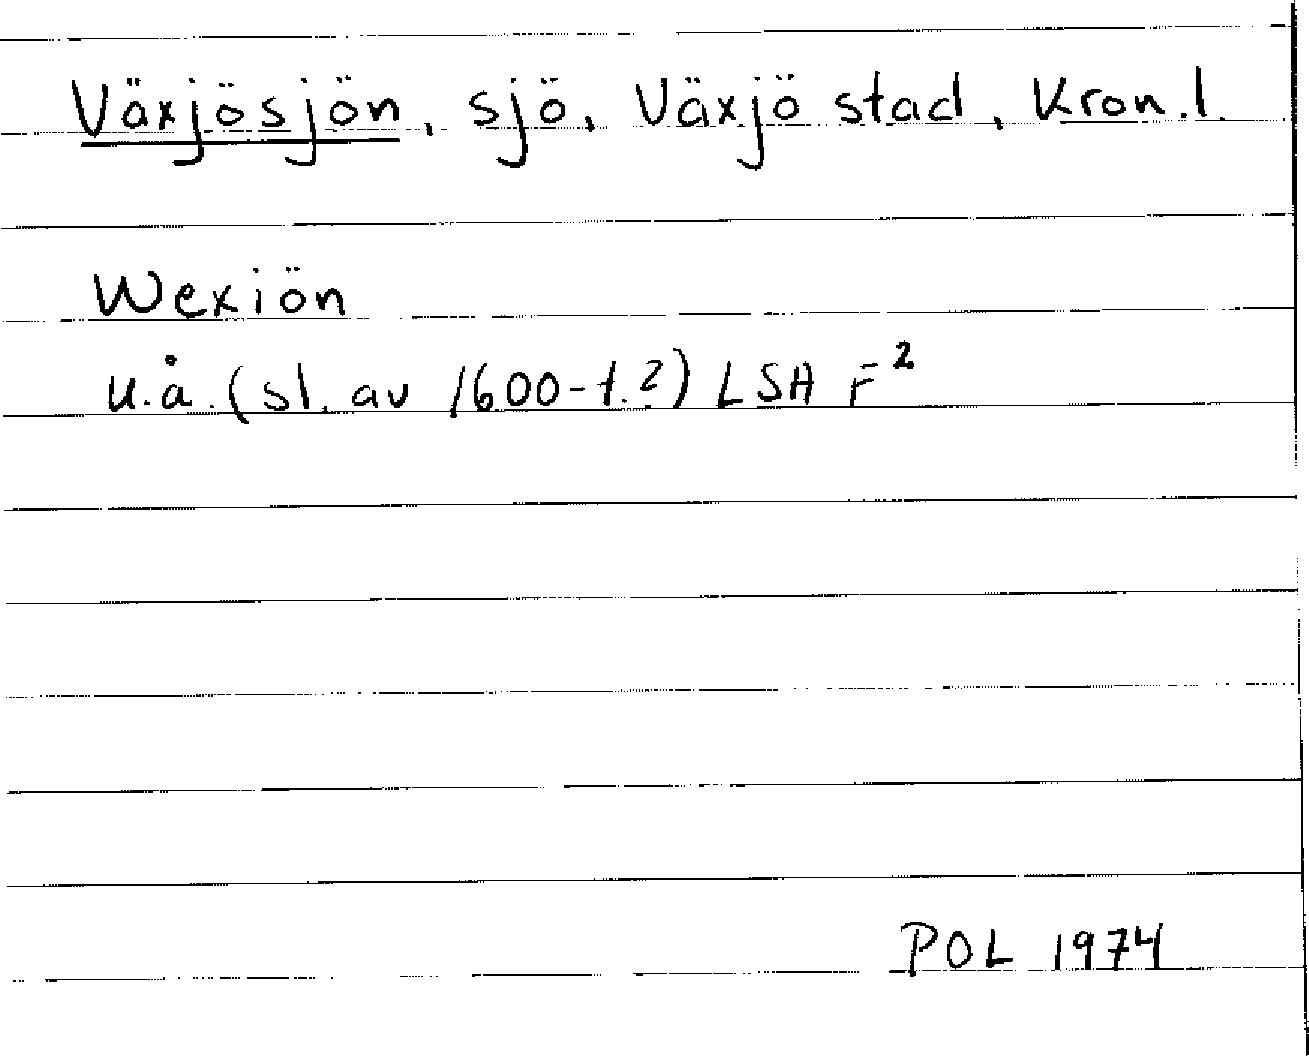 Växjösjön, sjö, Växjö stad, Kron.l.
Wexiön
u.å. (sl. av 1600-t.?) LSA F²
POL 1974